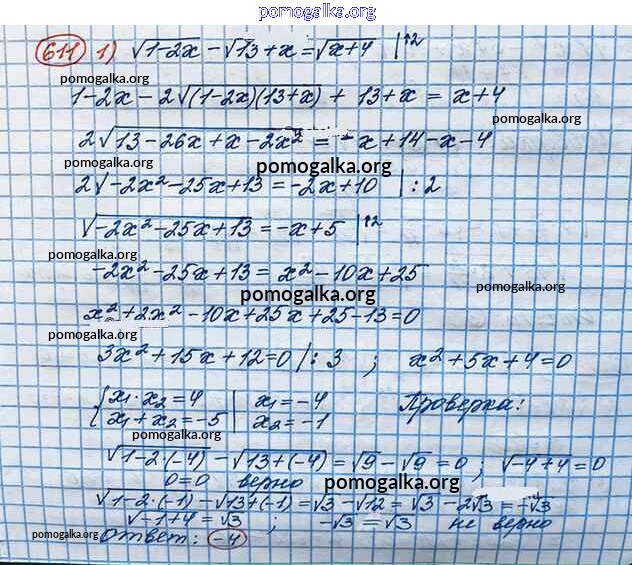 pomogalka.org
611 1) √1-2x - √13+x = √x+4 |↑2
pomogalka.org
1-2x-2√(1-2x)(13+x) + 13+x = x+4
pomogalka.org
2√13-26x+x-2x² = -x+14-x-4
pomogalka.org
pomogalka.org
2√-2x²-25x+13 = -2x+10 |:2
√-2x²-25x+13 = -x+5 |↑2
pomogalka.org
-2x²-25x+13 = x²-10x+25
pomogalka.org
pomogalka.org
x²+2x²-10x+25x+25-13=0
pomogalka.org
3x²+15x+12=0 |:3 ; x²+5x+4=0
{x₁·x₂=4 | x₁=-4 Проверка:
x₁+x₂=-5 | x₂=-1
pomogalka.org
√1-2·(-4) - √13+(-4) = √9 - √9 = 0 ; √-4+4 = 0
0=0 верно pomogalka.org
√1-2·(-1) - √13+(-1) = √3 - √12 = √3 - 2√3 = -√3
√-1+4 = √3 ; -√3 = √3 не верно
pomogalka.org Ответ: -4 pomogalka.org